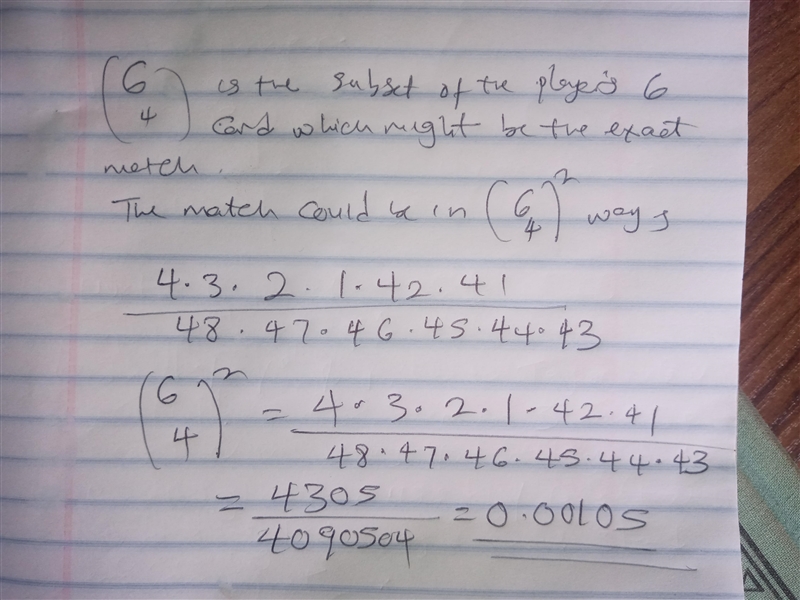 (6 4) is the subset of the player's 6
card which might be the exact
match.
The match could be in (6 4)² ways
4·3·2·1·42·41
48·47·46·45·44·43
(6 4)² = 4·3·2·1·42·41
48·47·46·45·44·43
= 4305
4090504 = 0.00105